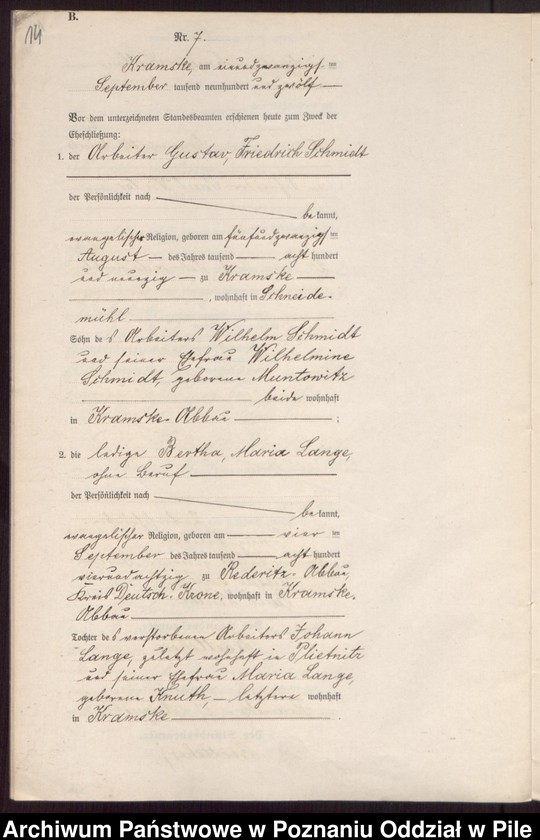 B.
14
Nr. 7.
Kramske, am einundzwanzigsten
September tausend neunhundert und zwölf
Vor dem unterzeichneten Standesbeamten erschienen heute zum Zweck der
Eheschließung:
1. der Arbeiter Gustav, Friedrich Schmidt
der Persönlichkeit nach
be kannt,
evangelischer Religion, geboren am fünfundzwanzigsten
August des Jahres tausend acht hundert
und neunzig zu Kramske
, wohnhaft in Schneide-
mühl
Sohn des Arbeiters Wilhelm Schmidt
und seiner Ehefrau Wilhelmine
Schmidt, geborene Muntowitz
beide wohnhaft
in Kramske-Abbau ;
2. die ledige Bertha, Maria Lange,
ohne Beruf
der Persönlichkeit nach
be kannt,
evangelischer Religion, geboren am vierten
September des Jahres tausend acht hundert
vierundachtzig zu Rederitz-Abbau,
Kreis Deutsch-Krone, wohnhaft in Kramske-
Abbau
Tochter des verstorbenen Arbeiters Johann
Lange, zuletzt wohnhaft in Plietnitz
und seiner Ehefrau Maria Lange,
geborene Knuth, letztere wohnhaft
in Kramske .
Archiwum Państwowe w Poznaniu Oddział w Pile